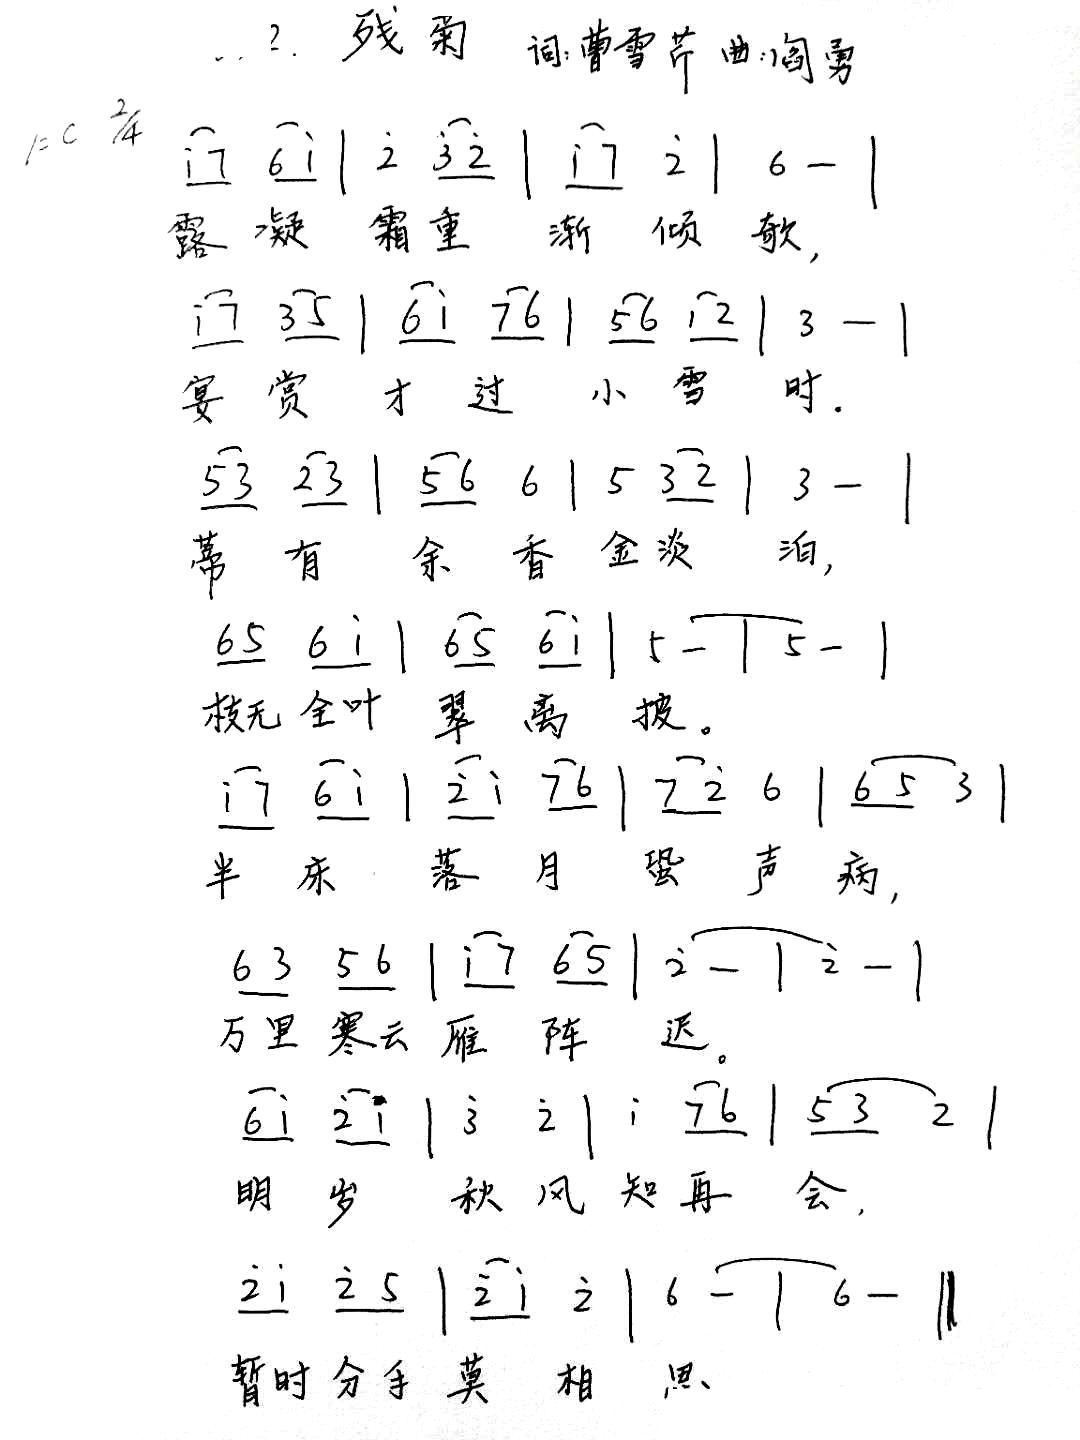 2. 残菊 词:曹雪芹 曲:阎勇
1=C 2/4
i7 6i | 2̇ 3̇2̇ | i7 2̇ | 6 — |
露 凝 霜 重 渐 倾 欹,
i7 35 | 6i 76 | 56 i2 | 3 — |
宴 赏 才 过 小 雪 时.
53 23 | 56 6 | 5 32 | 3 — |
蒂 有 余 香 金 淡 泊,
65 6i | 65 6i | 5 — | 5 — |
枝无 全叶 翠 离 披。
i7 6i | 2̇i 76 | 72̇ 6 | 65 3 |
半 床 落 月 蛩 声 病,
63 56 | i7 65 | 2̇ — | 2̇ — |
万里 寒云 雁 阵 迟。
6i 2̇i | 3̇ 2̇ | i 76 | 53 2 |
明 岁 秋 风 知 再 会,
2̇i 2̇5 | 2̇i 2̇ | 6 — | 6 — ‖
暂时 分手 莫 相 思、